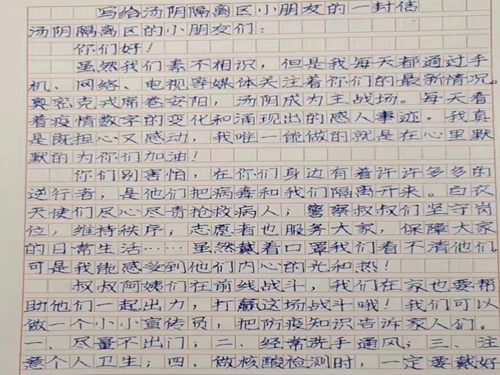 写给汤阴隔离区小朋友的一封信
汤阴隔离区的小朋友们：
你们好！
虽然我们素不相识，但是我每天都通过手
机、网络、电视等媒体关注着你们的最新情况。
奥密克戎席卷安阳，汤阴成为主战场。每天看
着疫情数字的变化和涌现出的感人事迹，我真
是既担心又感动，我唯一能做的就是在心里默
默的为你们加油！
你们别害怕，在你们身边有着许许多多的
逆行者，是他们把病毒和我们隔离开来。白衣
天使们尽心尽责抢救病人；警察叔叔们坚守岗
位，维持秩序；志愿者也服务大家，保障大家
的日常生活……虽然戴着口罩我们看不清他们，
可是我能感受到他们内心的光和热！
叔叔阿姨们在前线战斗，我们在家也要帮
助他们一起出力，打赢这场战斗哦！我们可以
做一个小小宣传员，把防疫知识告诉家人们。
一、尽量不出门；二、经常洗手通风；三、注
意个人卫生；四、做核酸检测时，一定要戴好